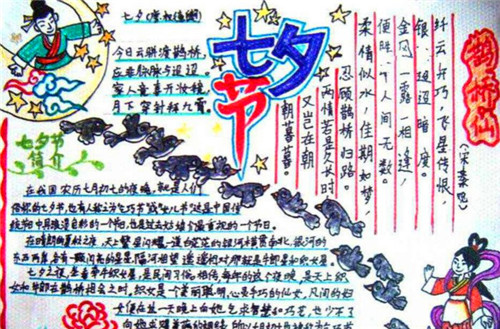 七夕(唐·权德舆)
今日云骈渡鹊桥,
应非脉脉与迢迢。
家人竞喜开妆镜,
月下穿针拜九霄。
七夕节
鹊桥仙
(宋秦观)
纤云弄巧,飞星传恨,
银汉迢迢暗度。
金风玉露一相逢,
便胜却人间无数。
柔情似水,佳期如梦,
忍顾鹊桥归路。
两情若是久长时,
又岂在朝
朝暮暮。
七夕节
简介
在我国,农历七月初七的夜晚,就是人们
俗称的七夕节,也有人称之为"乞巧节"或"女儿节"这是中国传
统节日中最具浪漫色彩的一个节日,也是过去姑娘们最重视的一个节日。
在晴朗的夏秋之夜,天上繁星闪耀,一道白茫茫的银河横贯南北,银河的
东西两岸,各有一颗闪亮的星星,隔河相望,遥遥相对,那就是牵牛星和织女星。
七夕之夜,坐看牵牛织女星,是民间习俗,相传,每年的这个夜晚,是天上织
女和牛郎在鹊桥相会之时,织女是一个美丽聪明、心灵手巧的仙女,凡间的妇
女便在这一天晚上向她乞求智慧和巧艺,也少不了